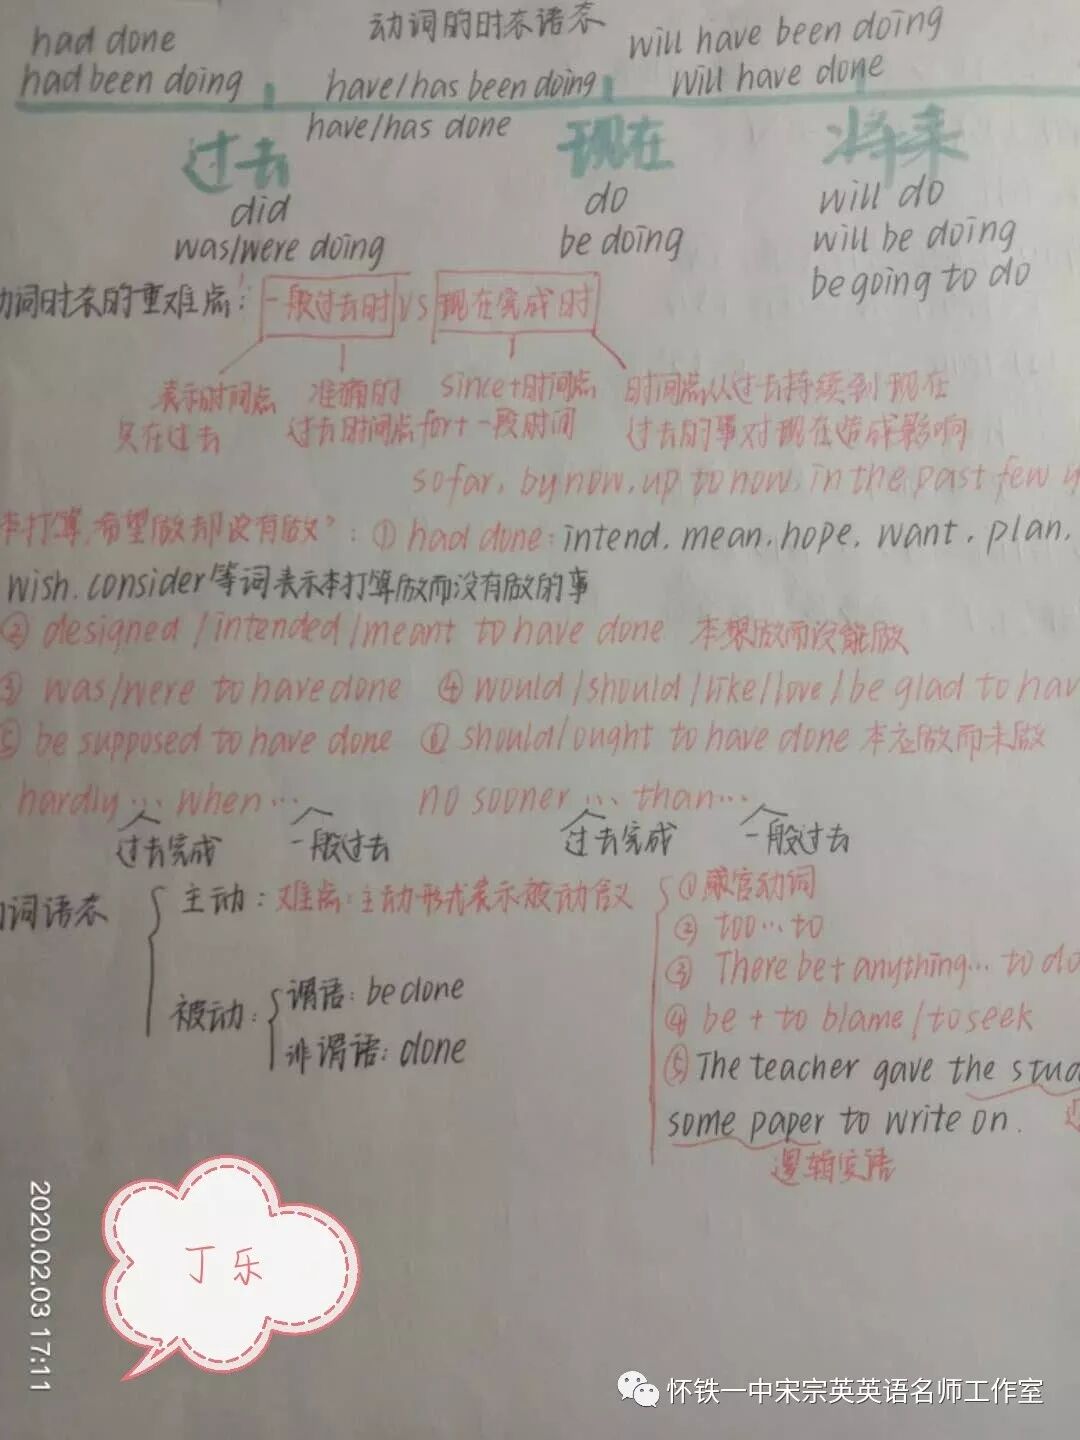 动词的时态语态
had done
had been doing
have/has been doing
have/has done
will have been doing
will have done
过去
did
was/were doing
现在
do
be doing
将来
will do
will be doing
be going to do
动词时态的重难点：一般过去时 VS 现在完成时
表示时间点
只在过去
准确的
过去时间点
since+时间点
for+一段时间
时间点从过去持续到现在
过去的事对现在造成影响
so far, by now, up to now, in the past few
本打算，希望做却没有做"：① had done: intend, mean, hope, want, plan,
wish, consider等词表示本打算做而没有做的事
② designed/intended/meant to have done 本想做而没能做
③ was/were to have done ④ would/should/like/love/be glad to hav
⑤ be supposed to have done ⑥ should/ought to have done 本应做而未做
hardly … when … no sooner … than …
过去完成 一般过去 过去完成 一般过去
词语态
主动：难点：主动形式表示被动含义
被动：
谓语：be done
非谓语：done
①感官动词
② too … to
③ There be + anything … to do
④ be + to blame/to seek
⑤ The teacher gave the stud
some paper to write on.
逻辑宾语
丁乐
2020.02.03 17:11
怀铁一中宋宗英英语名师工作室